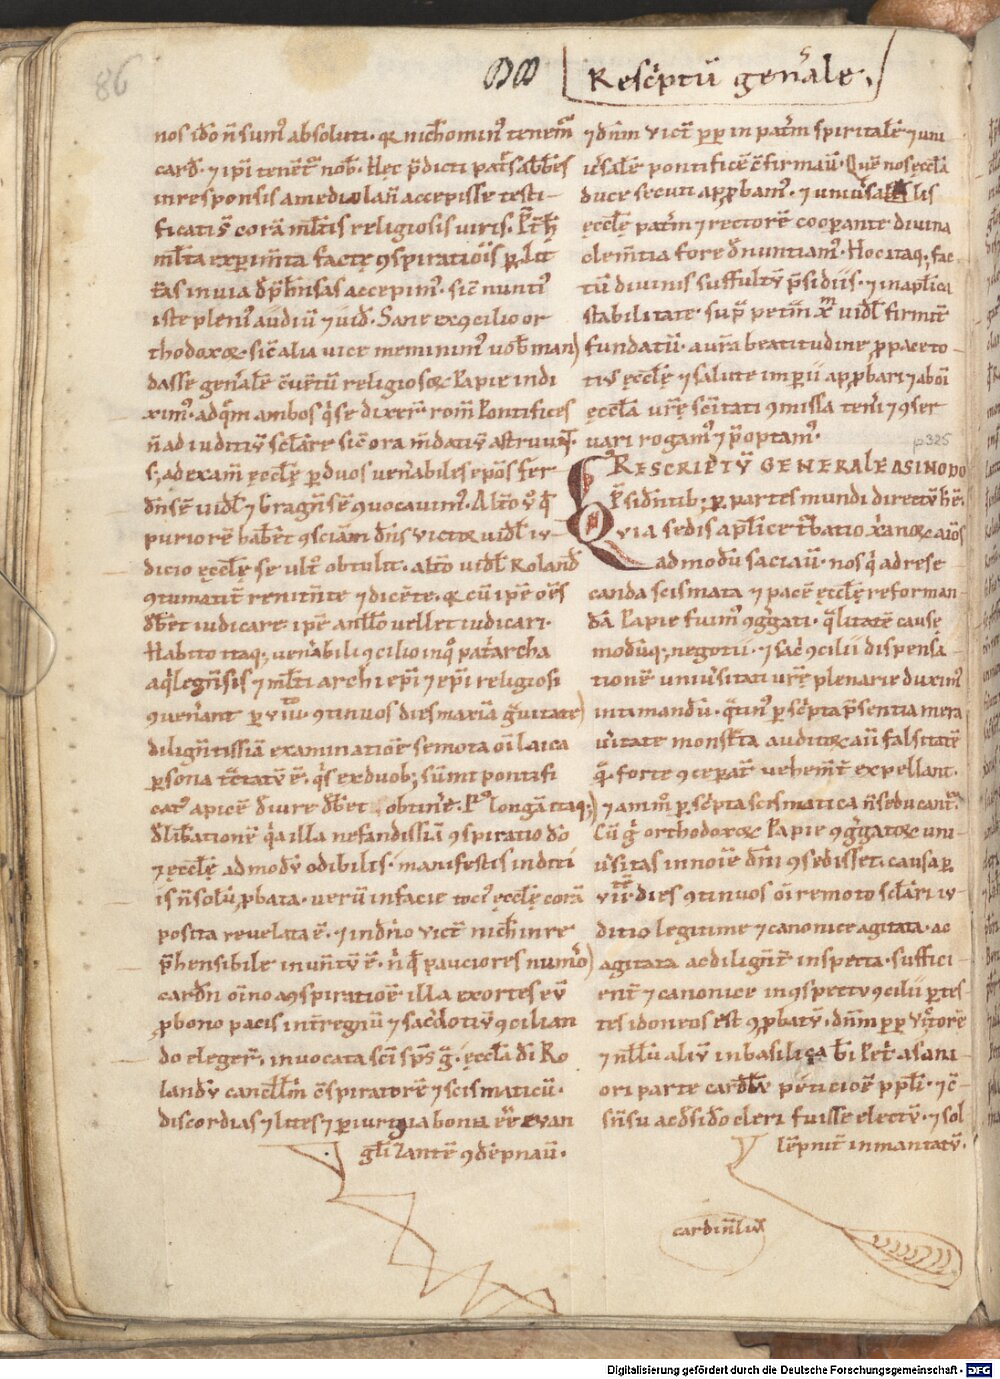 86
Rescptū gen̄ale.
nos ido n̄ sum᷒ absoluti· qꝛ nichomin᷒ tenem̄
card̄· ⁊ ipsi tenēt nob̄· Hec p̄dicti pat̄s abb̄es
in responsis a mediolan̄ accepisse testi-
ficati s̄ corā ml̄tis religiosis uiris·
ml̄ta experim̄ta factę ꝯspiratiois ꝑ lit
t̄as in uia dp̄hn̄sas accepim᷒· sic̄ nunti᷒
iste pleni᷒ audiū ⁊ uid̄· Sane ex ꝯcilio or
thodoxoꝝ· sic̄ alia uice meminim᷒ uob̄ man
dasse gen̄alē c̄uētū religiosoꝝ Papie indi
xim᷒· ad qm̄ ambos q̇ se dixer̄ rom̄ Pontifices
n̄ ad iuditiū sclāre sic̄ ora m̄datiū astruūt·
s; ad exam̄ ęccl̄ę ꝑ duos uen̄abiles ep̄os fer
dn̄sē uidl̄ ⁊ bragn̄sē ꝯuocauim᷒· Alt̄o ꝟ q̄
puriorē hab̄et ꝯsciām dn̄s uictor uidl̄ iu-
dicio ęccl̄ę se ult̄o obtulit· alt̄o uidl̄ Roland̄
ꝯtumatit̄ renitn̄te ⁊ dicēte· qꝛ cū ip̄e oēs
db̄et iudicare ip̄e a nullo uellet iudicari·
Habito itaq; uen̄abili ꝯcilio in q̊ patarcha
aqlegn̄sis ⁊ ml̄ti archiep̄i ⁊ ep̄i religiosi
ꝯuen̄ant ꝑ viii ꝯtinuos dies maxiā ḡuitate
dilign̄tissiā examinatiōe semota oī laica
ꝑsona t̄ctatū ē· q̇s ex duob; sūmi pontifi
cat᷒ apicē d̄ iure db̄et obtin̄e· P᷒ longā itaq;
dlib̄ationē qa illa nefandissiā ꝯspiratio do
⁊ ęccl̄ę admodū odibilis· manifestis inditi
is n̄ solū ꝓbata· uerū in facie toci᷒ ęccl̄ę corā
posita reuelata ē· ⁊ in dn̄o vict̄ nich̄ in re
p̄hensibile inun̄tū ē· n̄ q̄ pauciores num̄o
cardn̄ oīno a ꝯspiratiōe illa exortes eū
ꝓ bono pacis int̄ regnū ⁊ sac̄dotiū ꝯcilian
do eleger̄· inuocata sc̄i sp̄s ḡ· ęccl̄a di Ro
landū cancll̄m ꝯspiratorē ⁊ scismaticū·
discordias ⁊ lites ⁊ ꝑiuria bona ēē euan
gl̄izantē ꝯdēpnau·
⁊ dn̄m vict̄ pp̄ in pat̄m spiritalē ⁊ uni
u̓salē pontificē ꝯfirmau· Quē nos ęccl̄a
duce secuti apꝓbam᷒· ⁊ uniu̓salis
ęccl̄ę pat̄m ⁊ rectorē coop̄ante diuina
clem̄tia fore dn̄untiam᷒· Hoc itaq; fac
tū diuinis suffultū p̄sidiis· ⁊ in apl̄ica
stabilitate· sup̄ pet̄m x̄ uidl̄ firmit̄
fundatū· aur̄a beatitudine ꝓ pace to-
ti᷒ ęccl̄ę ⁊ salute imꝑii apꝓbari ⁊ ab oī
ęccl̄a ur̄ę sc̄itati ꝯmissa ten̄i ⁊ ꝯser
uari rogam᷒ ⁊ p̄optam᷒·
p325
RESCRIPTŪ GENERALE A SINODO
p̄sidn̄tib; ꝑ partes mundi directū hē·
QVia sedis apl̄ice t̄batio x̄anoꝝ aīos
admodū saciau· nos q̇ ad rese
canda scismata ⁊ pacē ęccl̄ę reforman-
dā Papie fuim᷒ ꝯḡgati· q̄litatē cause
modūq; negotii· ⁊ sac̄ ꝯcilii dispensa
tionē uniu̓sitati ur̄ę plenarie duxim᷒
intimandū· q̄tin᷒ ꝑ sc̄pta p̄sentia mera
u̓itate monst̄ta auditoꝝ au falsitatē
q̄ forte ꝯceꝑat̄ uehem̄t̄ expellant·
⁊ amm᷒ ꝑ sc̄pta scismatica n̄ seducant̄·
Cū ḡ orthodoxoꝝ Papie ꝯḡgatoꝝ uni-
u̓sitas in noīe dn̄i ꝯsedisset· causa ꝑ
vii dies ꝯtinuos oī remoto sclāri iu-
ditio legitime ⁊ canonice agitata· ac
agitata ac dilign̄t̄ inspecta· suffici-
ent̄ ⁊ canonice in ꝯspectu ꝯcilii ꝑ tes
tes idoneos est ꝯꝓbatū· dn̄m pp̄ uictorē
⁊ null̄ū aliū in basilica bī Pet̄i a sani
ori parte cardl̄iū peticiōe ppl̄i· ⁊ ꝯ-
sn̄su ac dsid̄o cleri fuisse electū· ⁊ sol
lēpnit̄ inmantatū·
cardinaliū
Digitalisierung gefördert durch die Deutsche Forschungsgemeinschaft - DFG